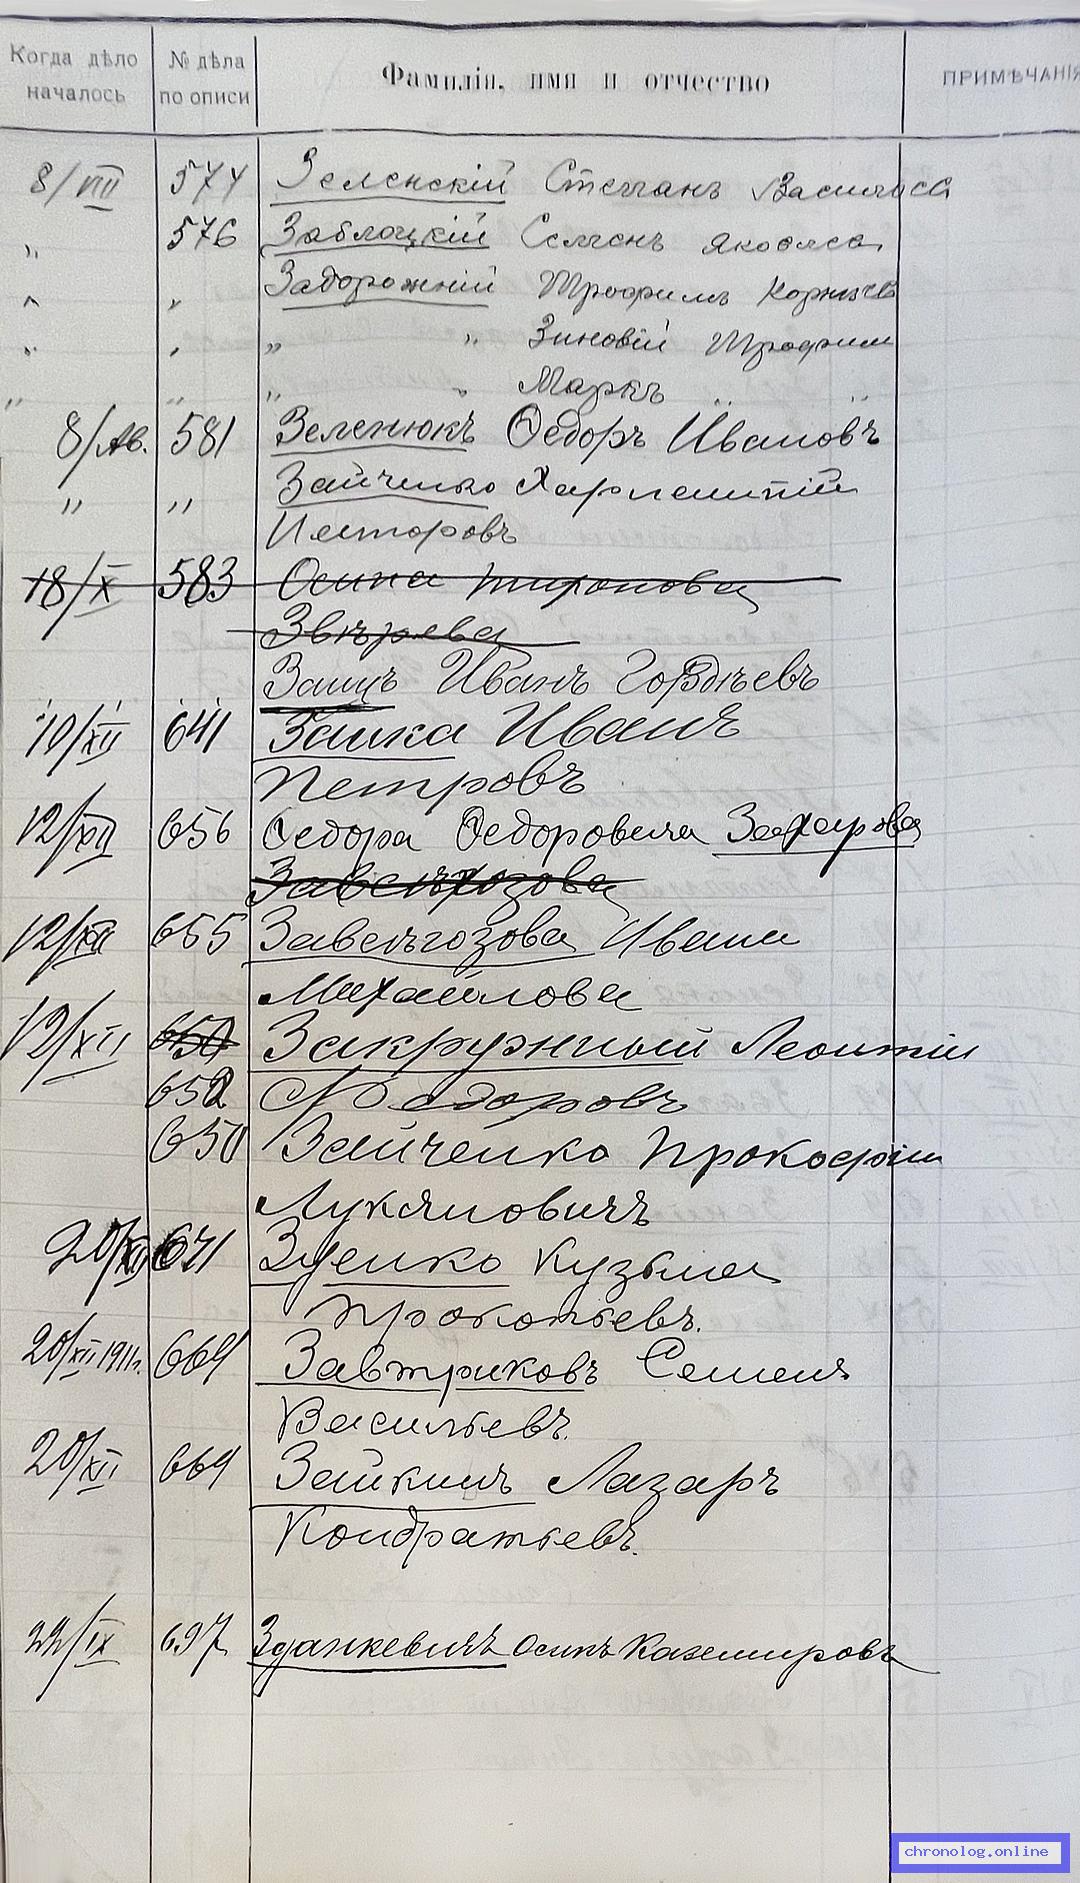 Когда дѣло началось № дѣла по описи Фамилія, имя и отчество ПРИМѢЧАНІЯ
8/VIII 574 Зеленскій Степанъ Васильев
„ 576 Заблоцкій Семенъ Яковлев
„ „ Задорожній Трофимъ Корнѣев
„ „ „ „ Зиновій Трофим
„ „ „ „ Маркъ „ „
8/Ав. 581 Зеленюкъ Ѳедоръ Ивановъ
„ „ Зайченко Харлампій
Несторовъ
18/X 583 Осипа Миронова
Звѣрева
Заицъ Иванъ Гордѣевъ
10/XII 641 Заика Иванъ
Петровъ
12/XII 656 Ѳедора Ѳедоровича Захарова
Завельгозова
12/XII 655 Завельгозова Ивана
Михайлова
12/XII 650 Закружный Леонтій
652 Ѳедоровъ
650 Зайченко Прокофій
Лукяновичъ
20/XII 671 Зуенко Кузьма
Прокопьевъ.
20/XII 1911г. 669 Завтриковъ Семенъ
Васильевъ.
20/XII 669 Зайкинъ Лазарь
Кондратьевъ.
22/IX 697 Зданкевичъ Осипъ Каземировъ
chronolog.online